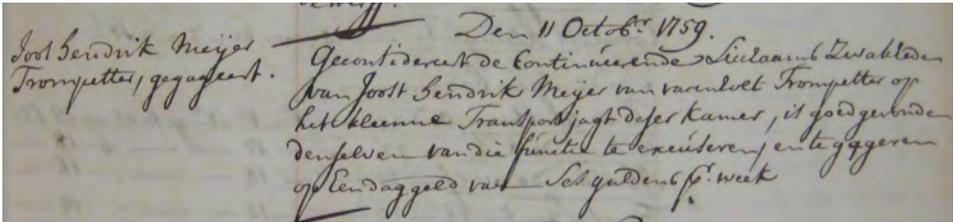 Den 11 Octobr. 1759.
Joost Hendrik Meijer
Trompetter, gegageert.
Geconsidereert de Continueerende Lichaams Zwakheden
van Joost Hendrik Meijer van Trompetter op
het kleenne Transport jagt deser Kamer, is goedgevonden
denselven van die functie te excuseren, en te gageren
op Een daggeld van Ses guldens pr. week